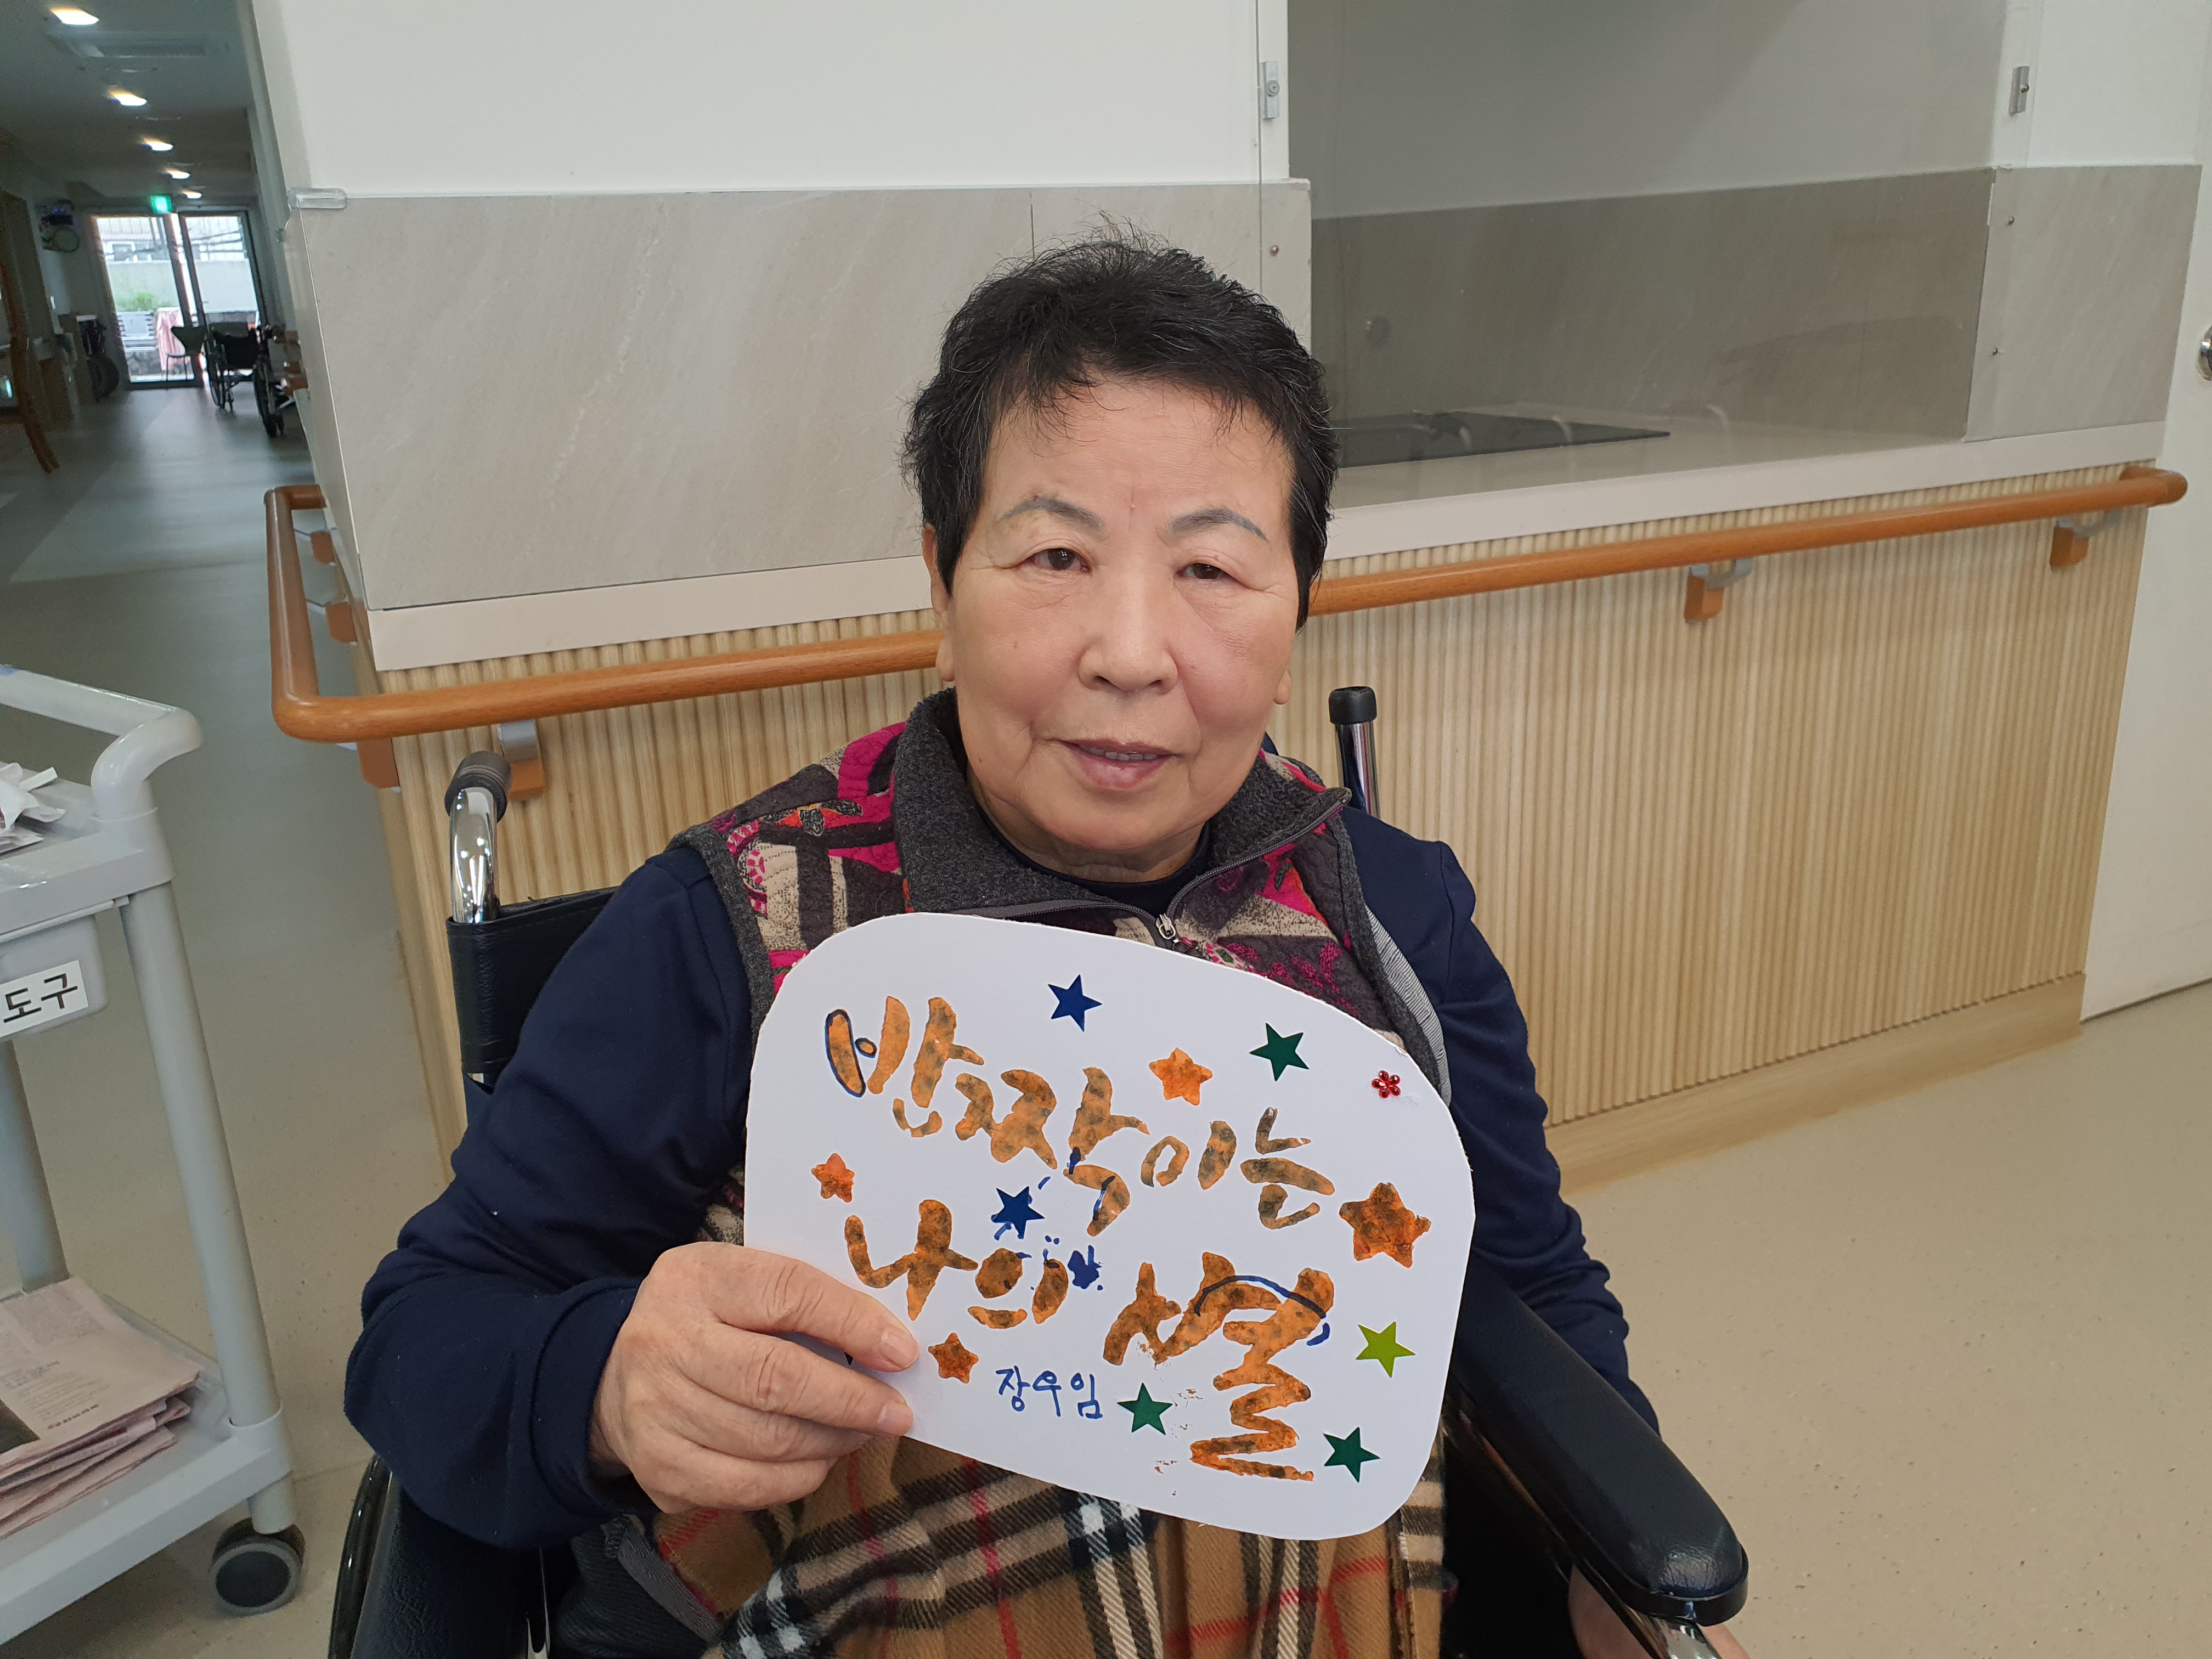 반짝이는
나의 별
장우임
도구